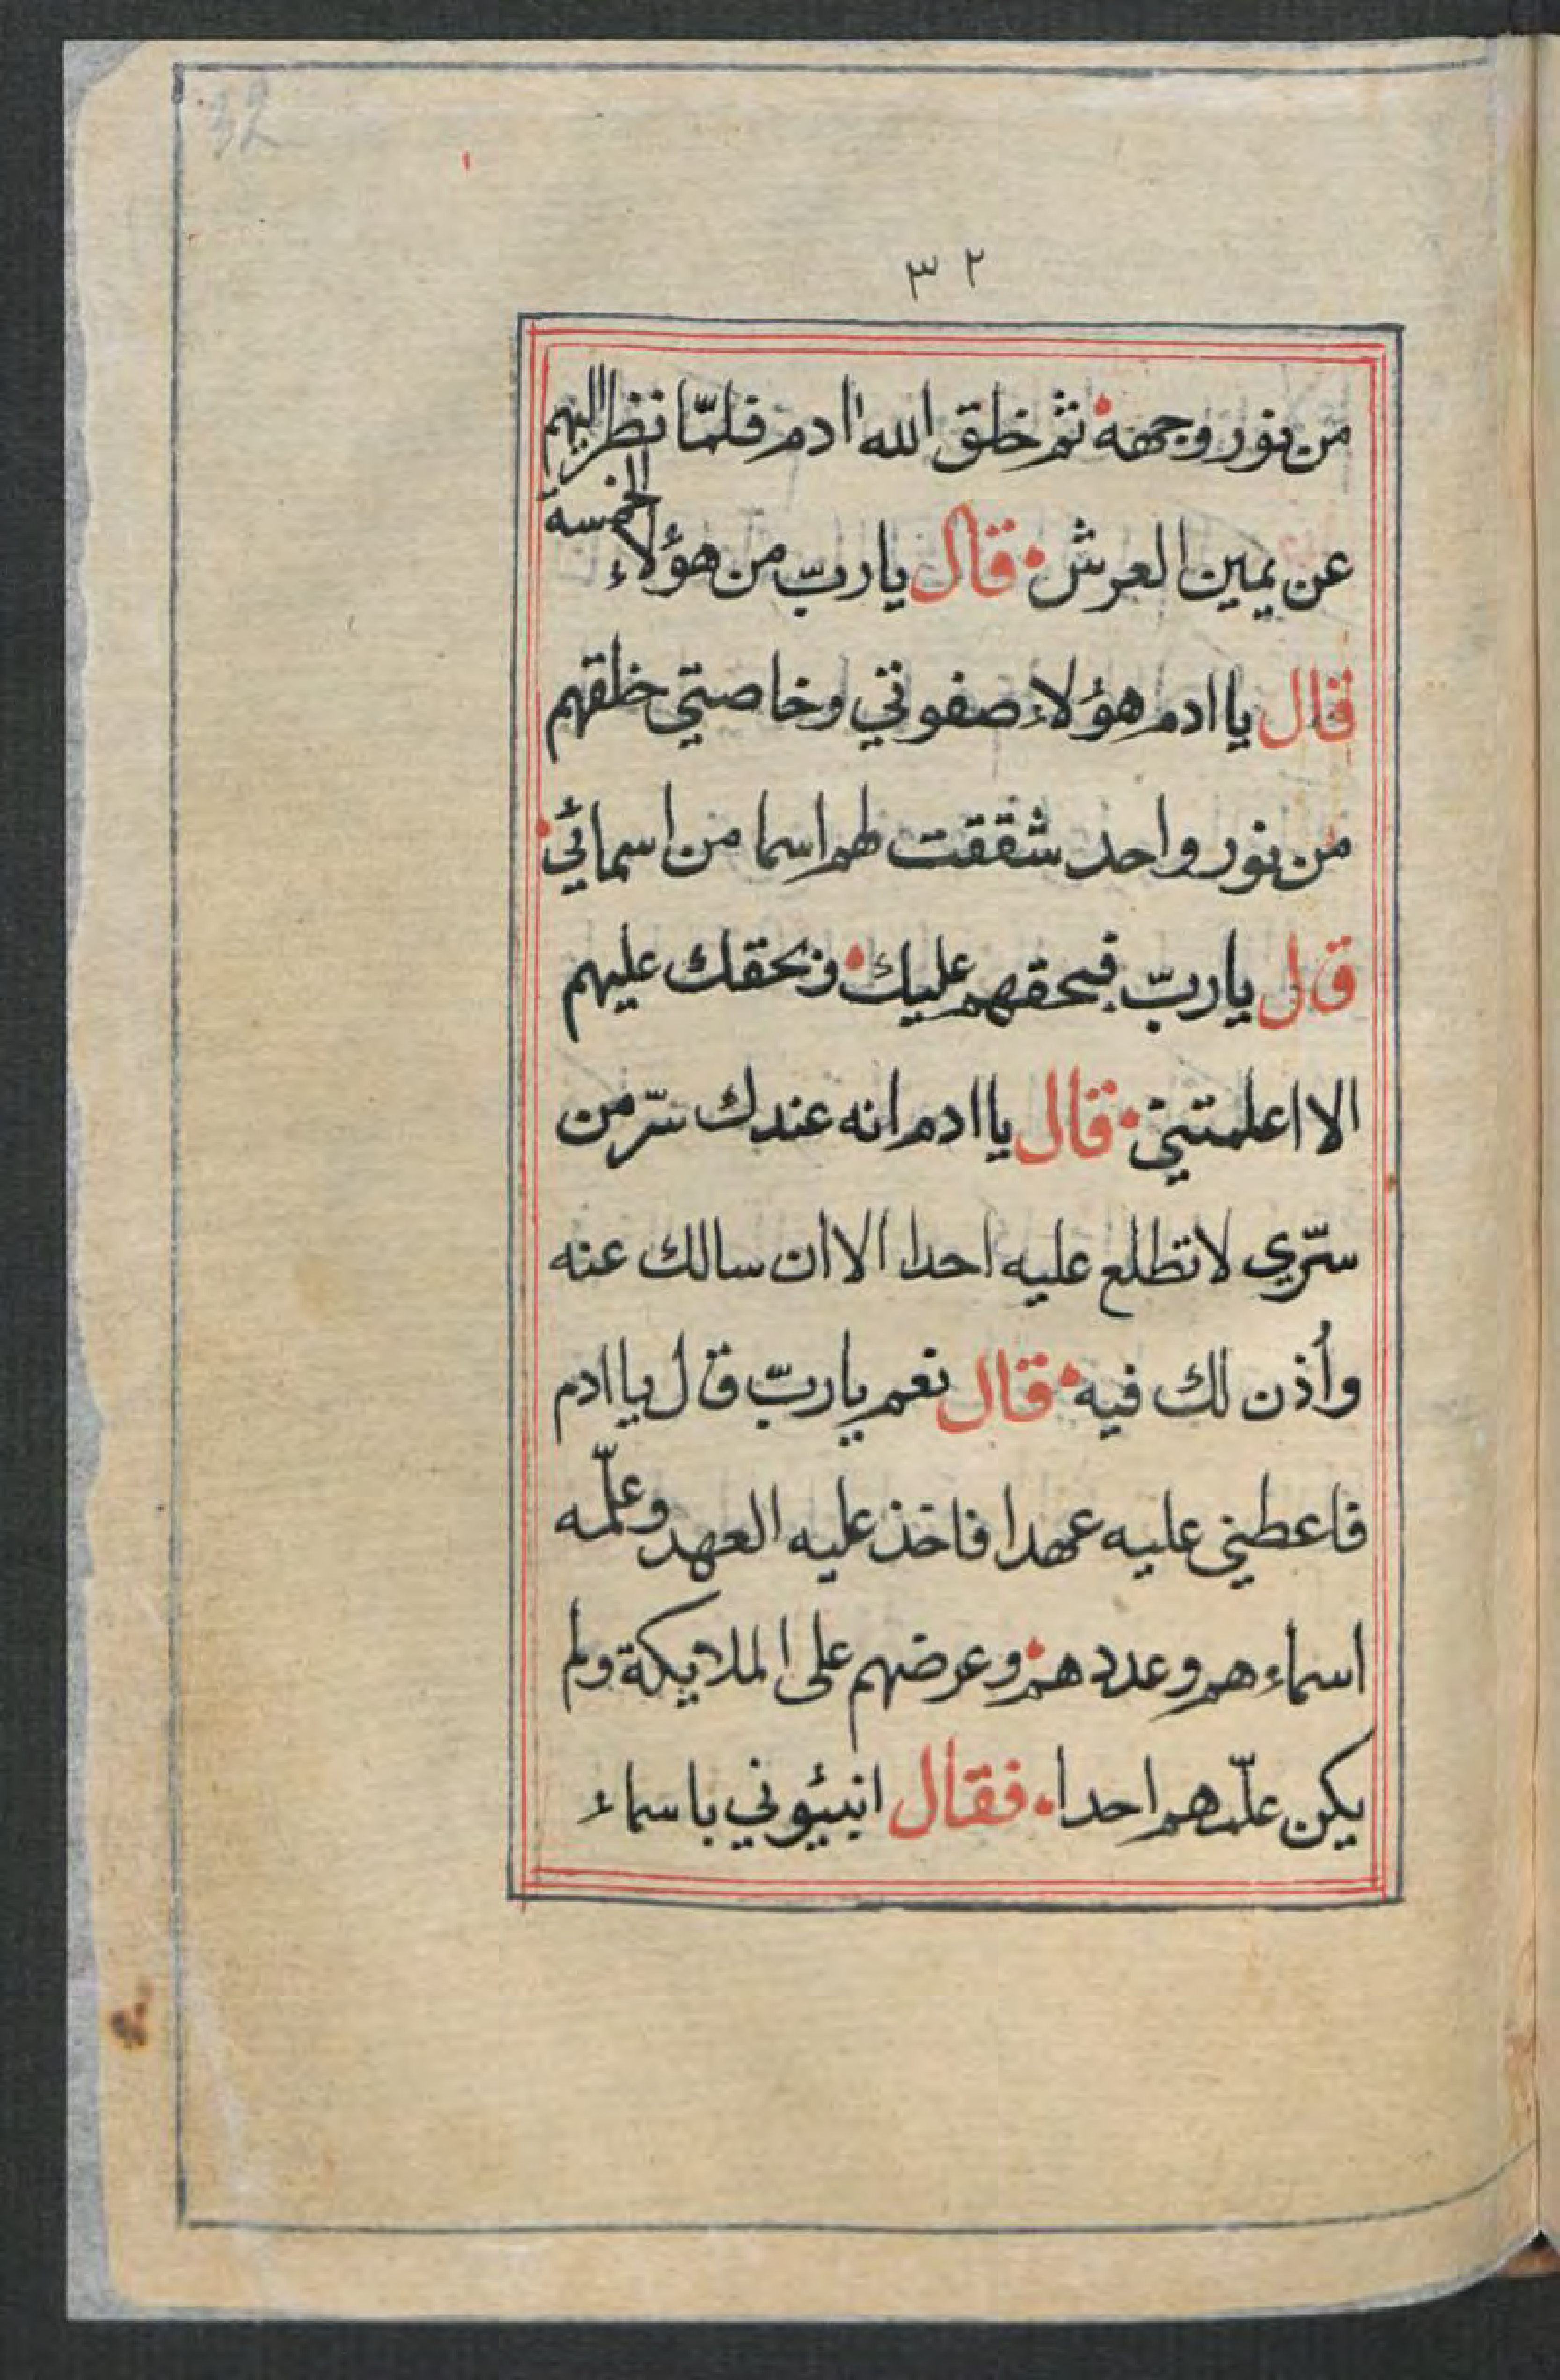 32
٣٢
من نور وجهه ثم خلق الله ادم فلمّا نظر اليهم
عن يمين العرش قال يا ربّ من هؤلاء الخمسة
قال يا ادم هؤلاء صفوتي وخاصتي خلقتهم
من نور واحد شققت لهم اسما من اسمائي
قال يا ربّ فبحقهم عليك وبحقك عليهم
الا اعلمتني قال يا ادم انه عندك سرّ من
سرّي لا تطلع عليه احدا الا ان سالك عنه
وأذن لك فيه قال نعم يا ربّ قال يا ادم
فاعطني عليه عهدا فاخذ عليه العهد وعلّمه
اسماءهم وعددهم وعرضهم على الملايكة ولم
يكن علّمهم احدا فقال انبيئوني باسماء